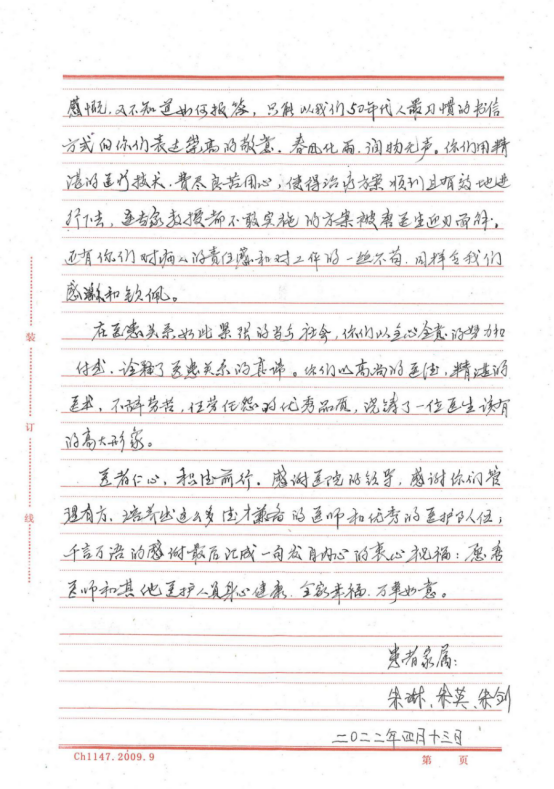 感慨,又不知道如何报答,只能以我们50年代人最习惯的书信
方式向你们表达崇高的敬意。春风化雨,润物无声。你们用精
湛的医疗技术,费尽良苦用心,使得治疗方案顺利且有效地进
行下去,连专家教授都不敢实施的方案被唐医生迎刃而解。
还有你们对病人的责任感和对工作的一丝不苟,同样令我们
感激和钦佩。
在医患关系如此紧张的当今社会,你们以全心全意的努力和
付出,诠释了医患关系的真谛。你们以高尚的医德,精湛的
医术,不辞劳苦,任劳任怨的优秀品质,浇铸了一位医生该有
的高大形象。
医者仁心,积德前行。感谢医院的领导,感谢你们管
理有方,培养出这么多德才兼备的医师和优秀的医护队伍;
千言万语的感谢最后汇成一句发自内心的衷心祝福:愿
医师和其他医护人员身心健康,全家幸福,万事如意。
患者家属:
朱琳,朱英,朱剑
二〇二二年四月十三日
装
订
线
Ch1147.2009.9
第 页